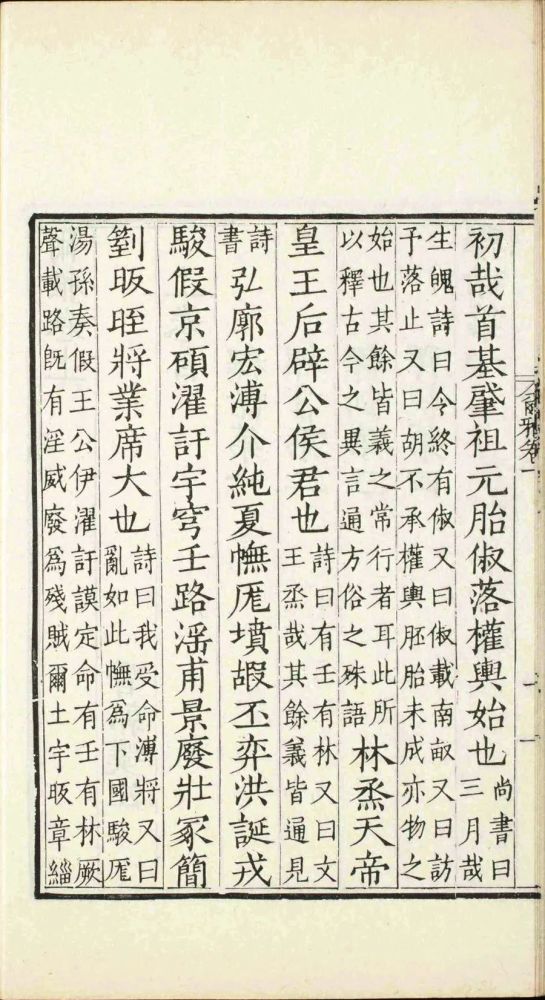 初哉首基肈祖元胎俶落權輿始也尚書曰三月哉
生魄詩曰令終有俶又曰俶載南畝又曰訪
予落止又曰胡不承權輿胚胎未成亦物之
始也其餘皆義之常行者耳此所
以釋古今之異言通方俗之殊語
林烝天帝
皇王后辟公侯君也詩曰有壬有林又曰文
王烝哉其餘義皆通見
詩
書
弘廓宏溥介純夏幠厖墳嘏丕弈洪誕戎
駿假京碩濯訏宇穹壬路淫甫景廢壯冢簡
箌昄晊將業席大也詩曰我受命溥將又曰
亂如此幠為下國駿厖
湯孫奏假王公伊濯訏謨定命有壬有林厥
聲載路旣有淫威廢爲殘賊爾土宇昄章緇